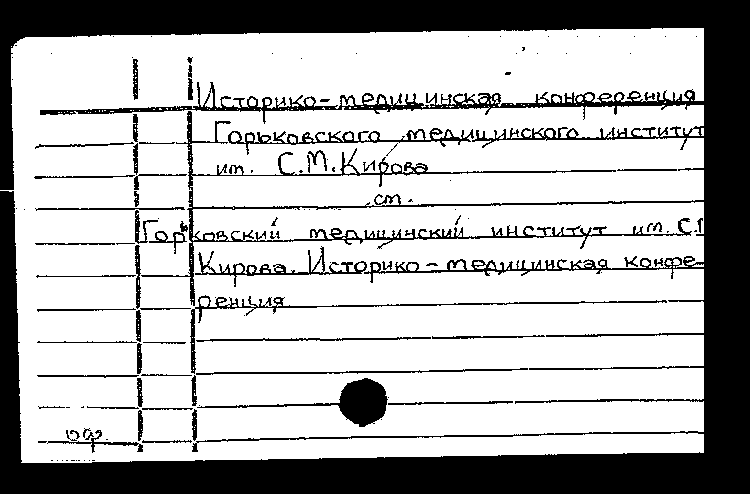 Историко-медицинская конференция
Горьковского медицинского институт
им. С.М.Кирова
см.
Горьковский медицинский институт им. С.
Кирова. Историко-медицинская конфе-
ренция